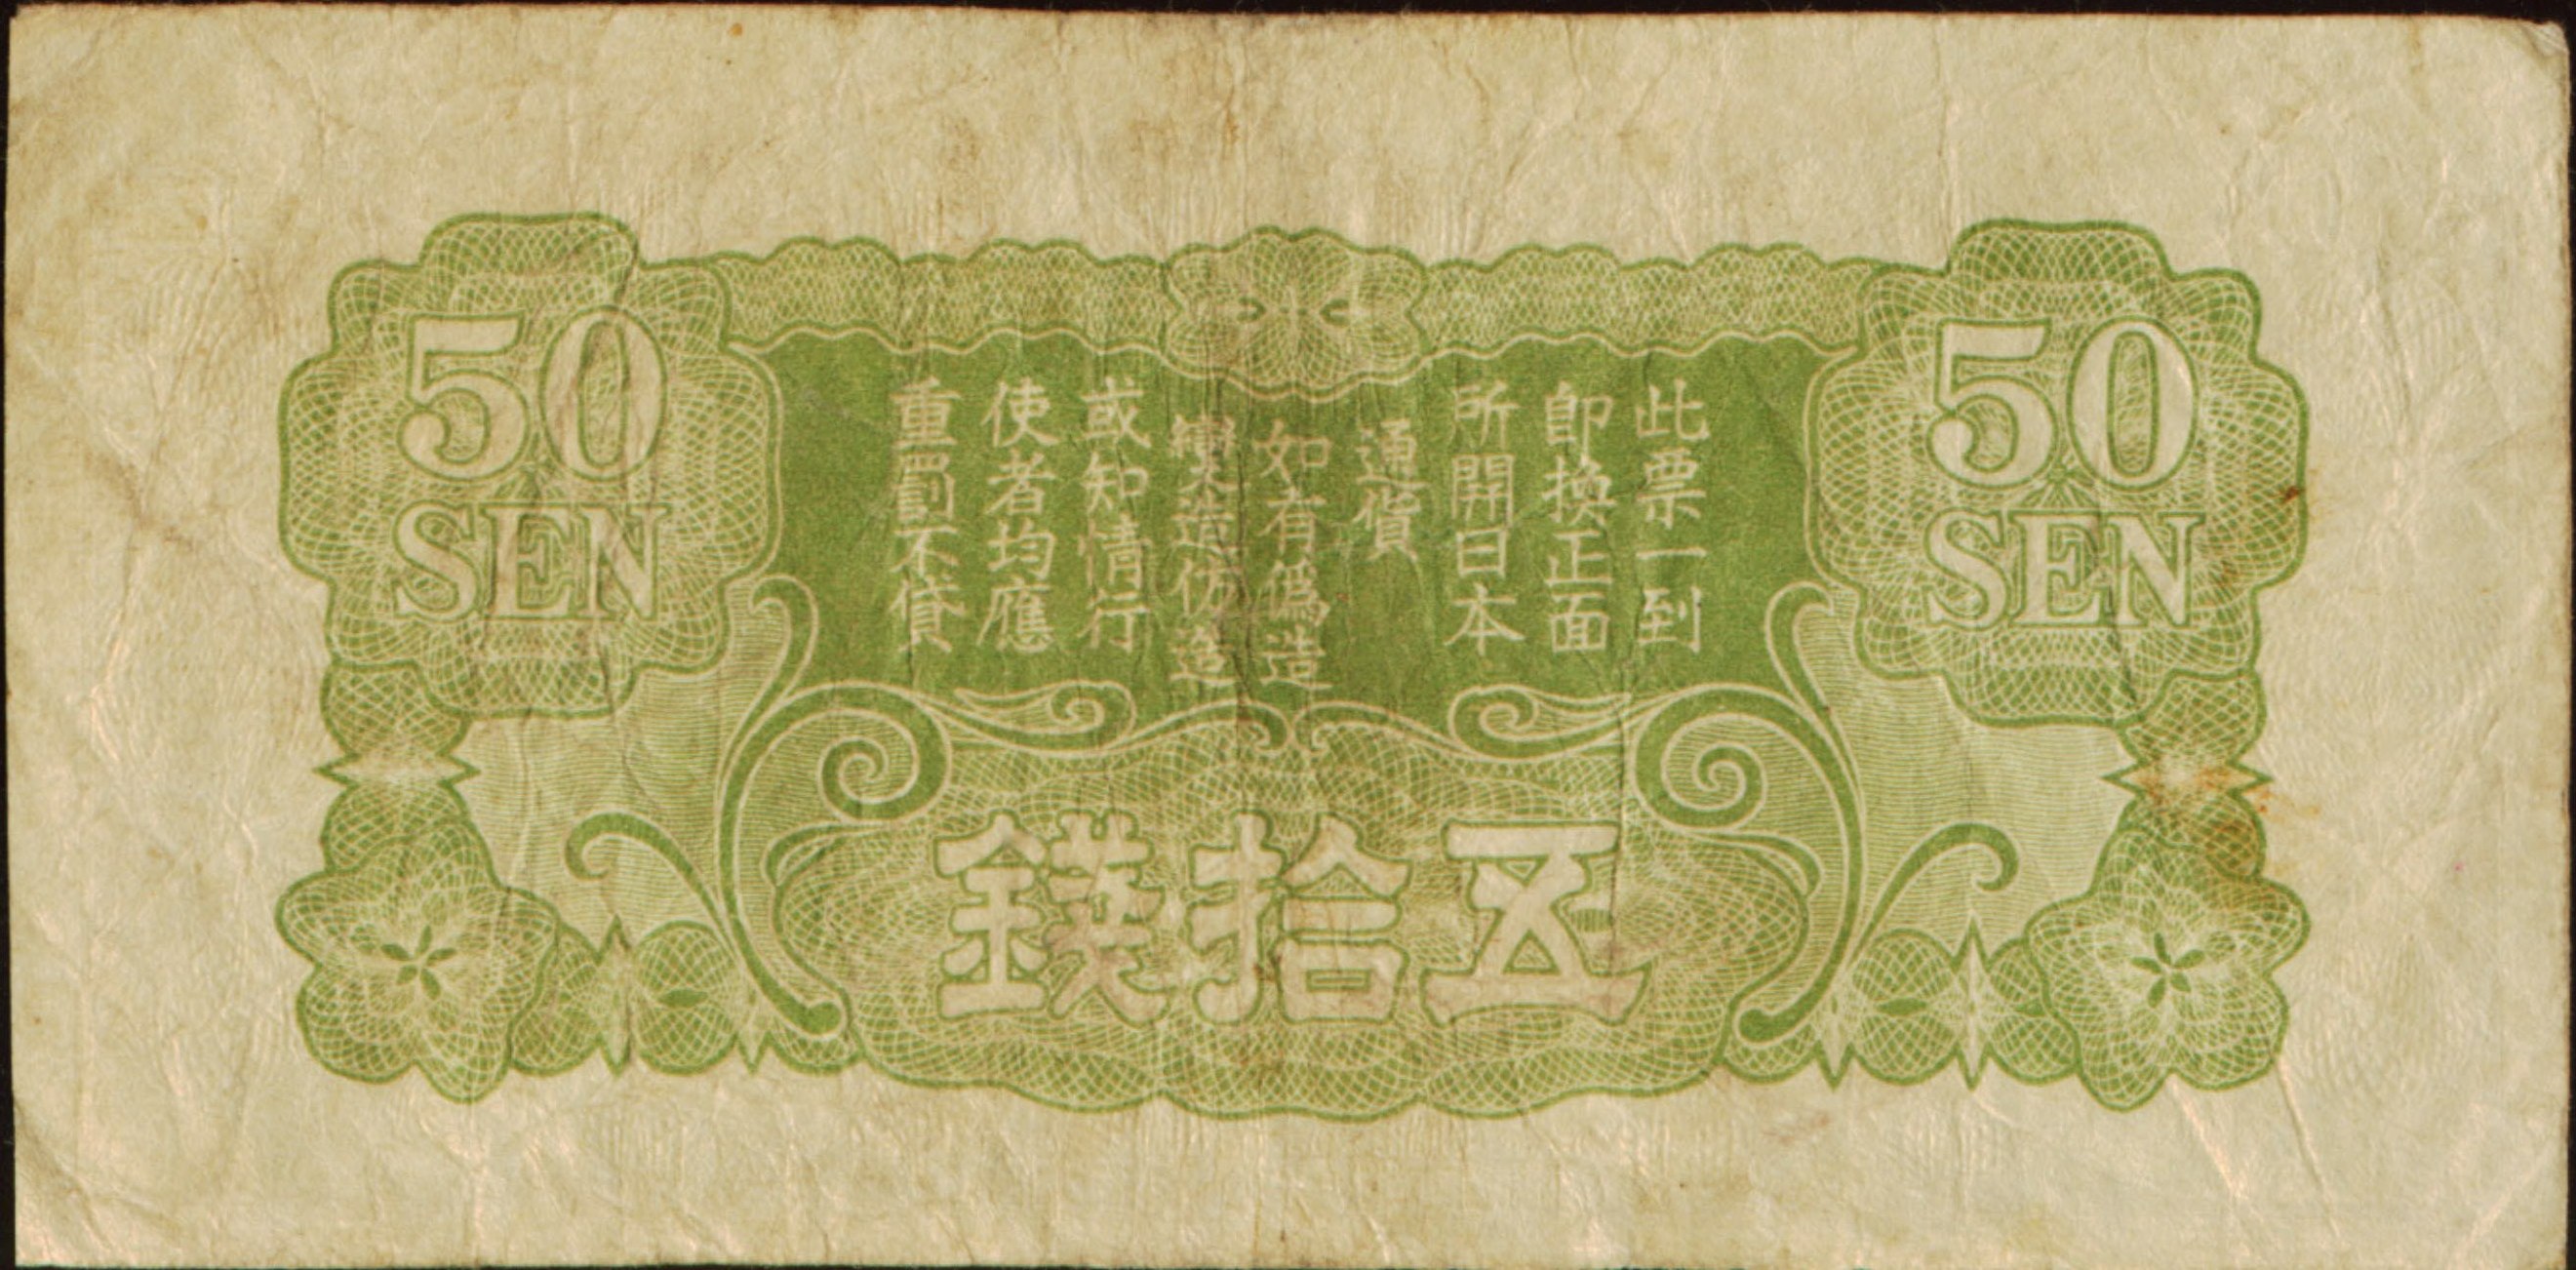 50
SEN
50
SEN
此票一到
即換正面
所開日本
通貨
如有偽造
變造仿造
或知情行
使者均應
重罰不貸
五拾錢